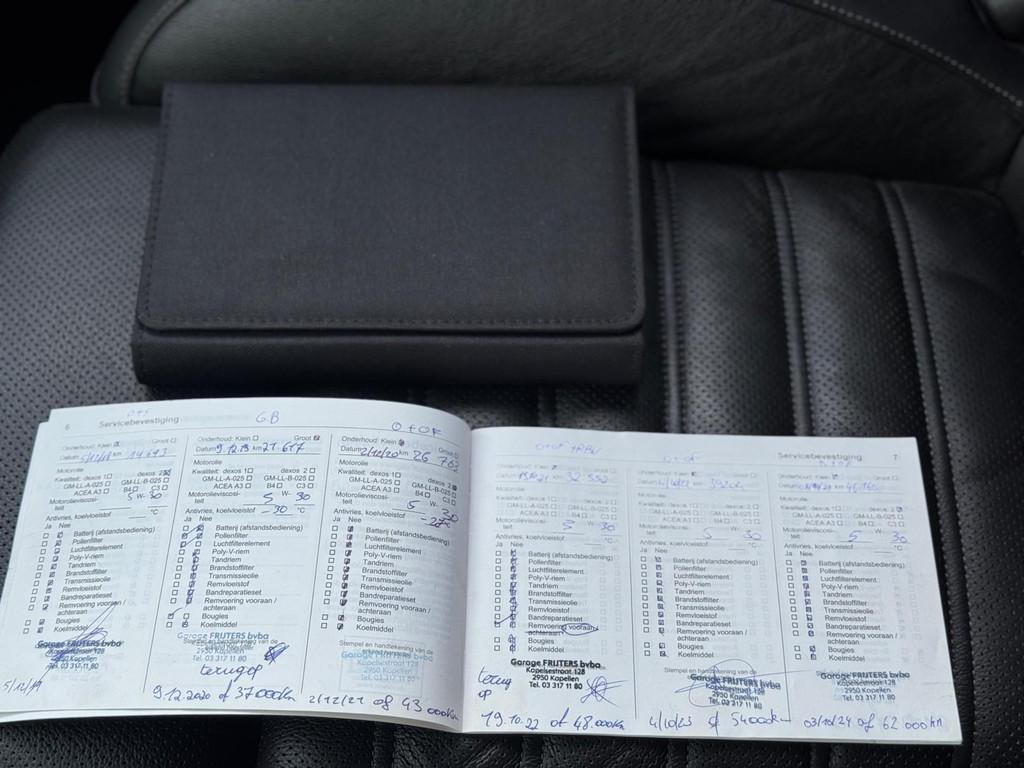 6 Servicebevestiging
GB
O+OF
Onderhoud: Klein Groot
Datum km
Motorolie
Kwaliteit: dexos 1 dexos 2
GM-LL-A-025 GM-LL-B-025
ACEA A3 B4 C3
Motorolieviscosi-
teit 5 W- 30
Antivries, koelvloeistof °C
Ja Nee
Batterij (afstandsbediening)
Pollenfilter
Luchtfilterelement
Poly-V-riem
Tandriem
Brandstoffilter
Transmissieolie
Remvloeistof
Bandreparatieset
Remvoering vooraan /
achteraan
Bougies
Koelmiddel
Garage FRUTERS bvba
Kapellen
Tel. 03 317 11 80
Onderhoud: Klein Groot
Datum 9.12.19 km 21.617
Motorolie
Kwaliteit: dexos 1 dexos 2
GM-LL-A-025 GM-LL-B-025
ACEA A3 B4 C3
Motorolieviscosi-
teit 5 W- 30
Antivries, koelvloeistof -30 °C
Ja Nee
Batterij (afstandsbediening)
Pollenfilter
Luchtfilterelement
Poly-V-riem
Tandriem
Brandstoffilter
Transmissieolie
Remvloeistof
Bandreparatieset
Remvoering vooraan /
achteraan
Bougies
Koelmiddel
Garage FRUTERS bvba
2950 Kapellen
Tel. 03 317 11 80
terug op
9.12.2020 of 37000km
Onderhoud: Klein Groot
Datum 2/12/20 km 26 762
Motorolie
Kwaliteit: dexos 1 dexos 2
GM-LL-A-025 GM-LL-B-025
ACEA A3 B4 C3
Motorolieviscosi-
teit 5 W- 30
Antivries, koelvloeistof -27 °C
Ja Nee
Batterij (afstandsbediening)
Pollenfilter
Luchtfilterelement
Poly-V-riem
Tandriem
Brandstoffilter
Transmissieolie
Remvloeistof
Bandreparatieset
Remvoering vooraan /
achteraan
Bougies
Koelmiddel
Stempel en handtekening van de
Garage FRUTERS bvba
Kapelsestraat 128
2950 Kapellen
Tel. 03 317 11 80
2/12/21 of 43 000km
Servicebevestiging 7
Onderhoud: Klein Groot
km 32 552
Motorolie
Kwaliteit: dexos 1 dexos 2
GM-LL-A-025 GM-LL-B-025
ACEA A3 B4 C3
Motorolieviscosi-
teit 5 W- 30
Antivries, koelvloeistof °C
Ja Nee
Batterij (afstandsbediening)
Pollenfilter
Luchtfilterelement
Poly-V-riem
Tandriem
Brandstoffilter
Transmissieolie
Remvloeistof
Bandreparatieset
Remvoering vooraan /
achteraan
Bougies
Koelmiddel
Garage FRUTERS bvba
Kapelsestraat 128
2950 Kapellen
Tel. 03 317 11 80
terug
op
19.10.22 of 48.000km
Onderhoud: Klein Groot
Motorolie
Kwaliteit: dexos 1 dexos 2
GM-LL-A-025 GM-LL-B-025
ACEA A3 B4 C3
Motorolieviscosi-
teit 5 W- 30
Antivries, koelvloeistof °C
Ja Nee
Batterij (afstandsbediening)
Pollenfilter
Luchtfilterelement
Poly-V-riem
Tandriem
Brandstoffilter
Transmissieolie
Remvloeistof
Bandreparatieset
Remvoering vooraan /
achteraan
Bougies
Koelmiddel
Stempel en handtekening van de
Garage FRUTERS bvba
Kapelsestraat 128
2950 Kapellen
Tel. 03 317 11 80
4/10/23 of 54000km
Onderhoud: Klein Groot
Motorolie
Kwaliteit: dexos 1 dexos 2
GM-LL-A-025 GM-LL-B-025
ACEA A3 B4 C3
Motorolieviscosi-
teit 5 W- 30
Antivries, koelvloeistof °C
Ja Nee
Batterij (afstandsbediening)
Pollenfilter
Luchtfilterelement
Poly-V-riem
Tandriem
Brandstoffilter
Transmissieolie
Remvloeistof
Bandreparatieset
Remvoering vooraan /
achteraan
Bougies
Koelmiddel
Garage FRUTERS bvba
Kapelsestraat 128
2950 Kapellen
Tel. 03 317 11 80
03/10/24 of 62 000km